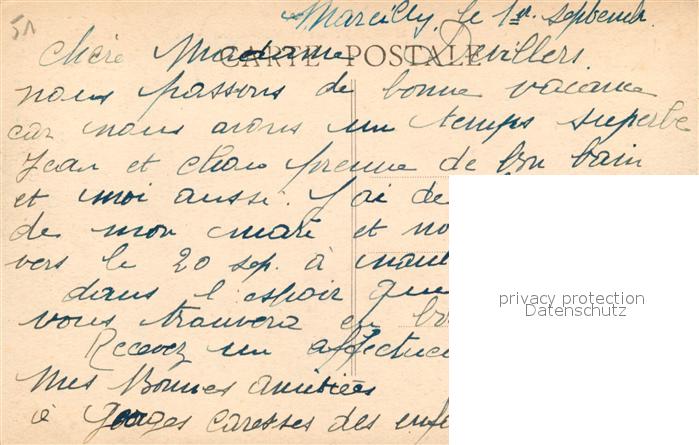 51
Marcilly, le 1er septembre
CARTE POSTALE
Chère Madame Devillers
nous passons de bonne vacance
car nous avons un temps superbe
Jean et prenne de bon bain
et moi aussi. J'ai de
de mon mari et no
vers le 20 sep. à
dans l'espoir que
vous trouvera en bo
Recevez un affectueu
Mes Bonnes amitiées
à Georges caresses des enf
privacy protection
Datenschutz